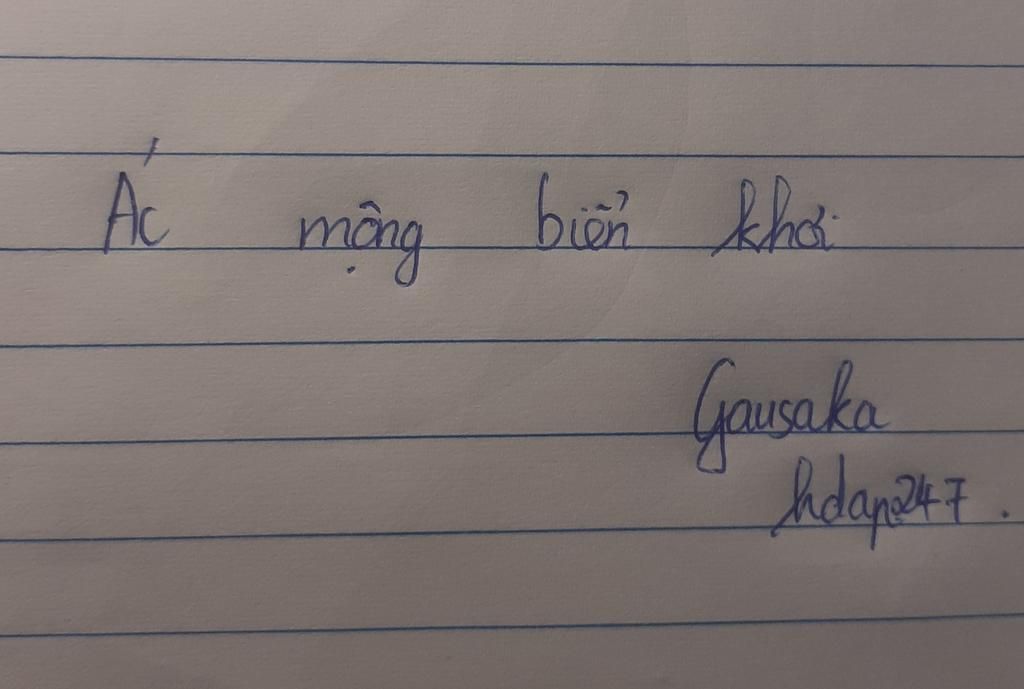 Ác mộng biển khơi
Gausaka
hdap247.